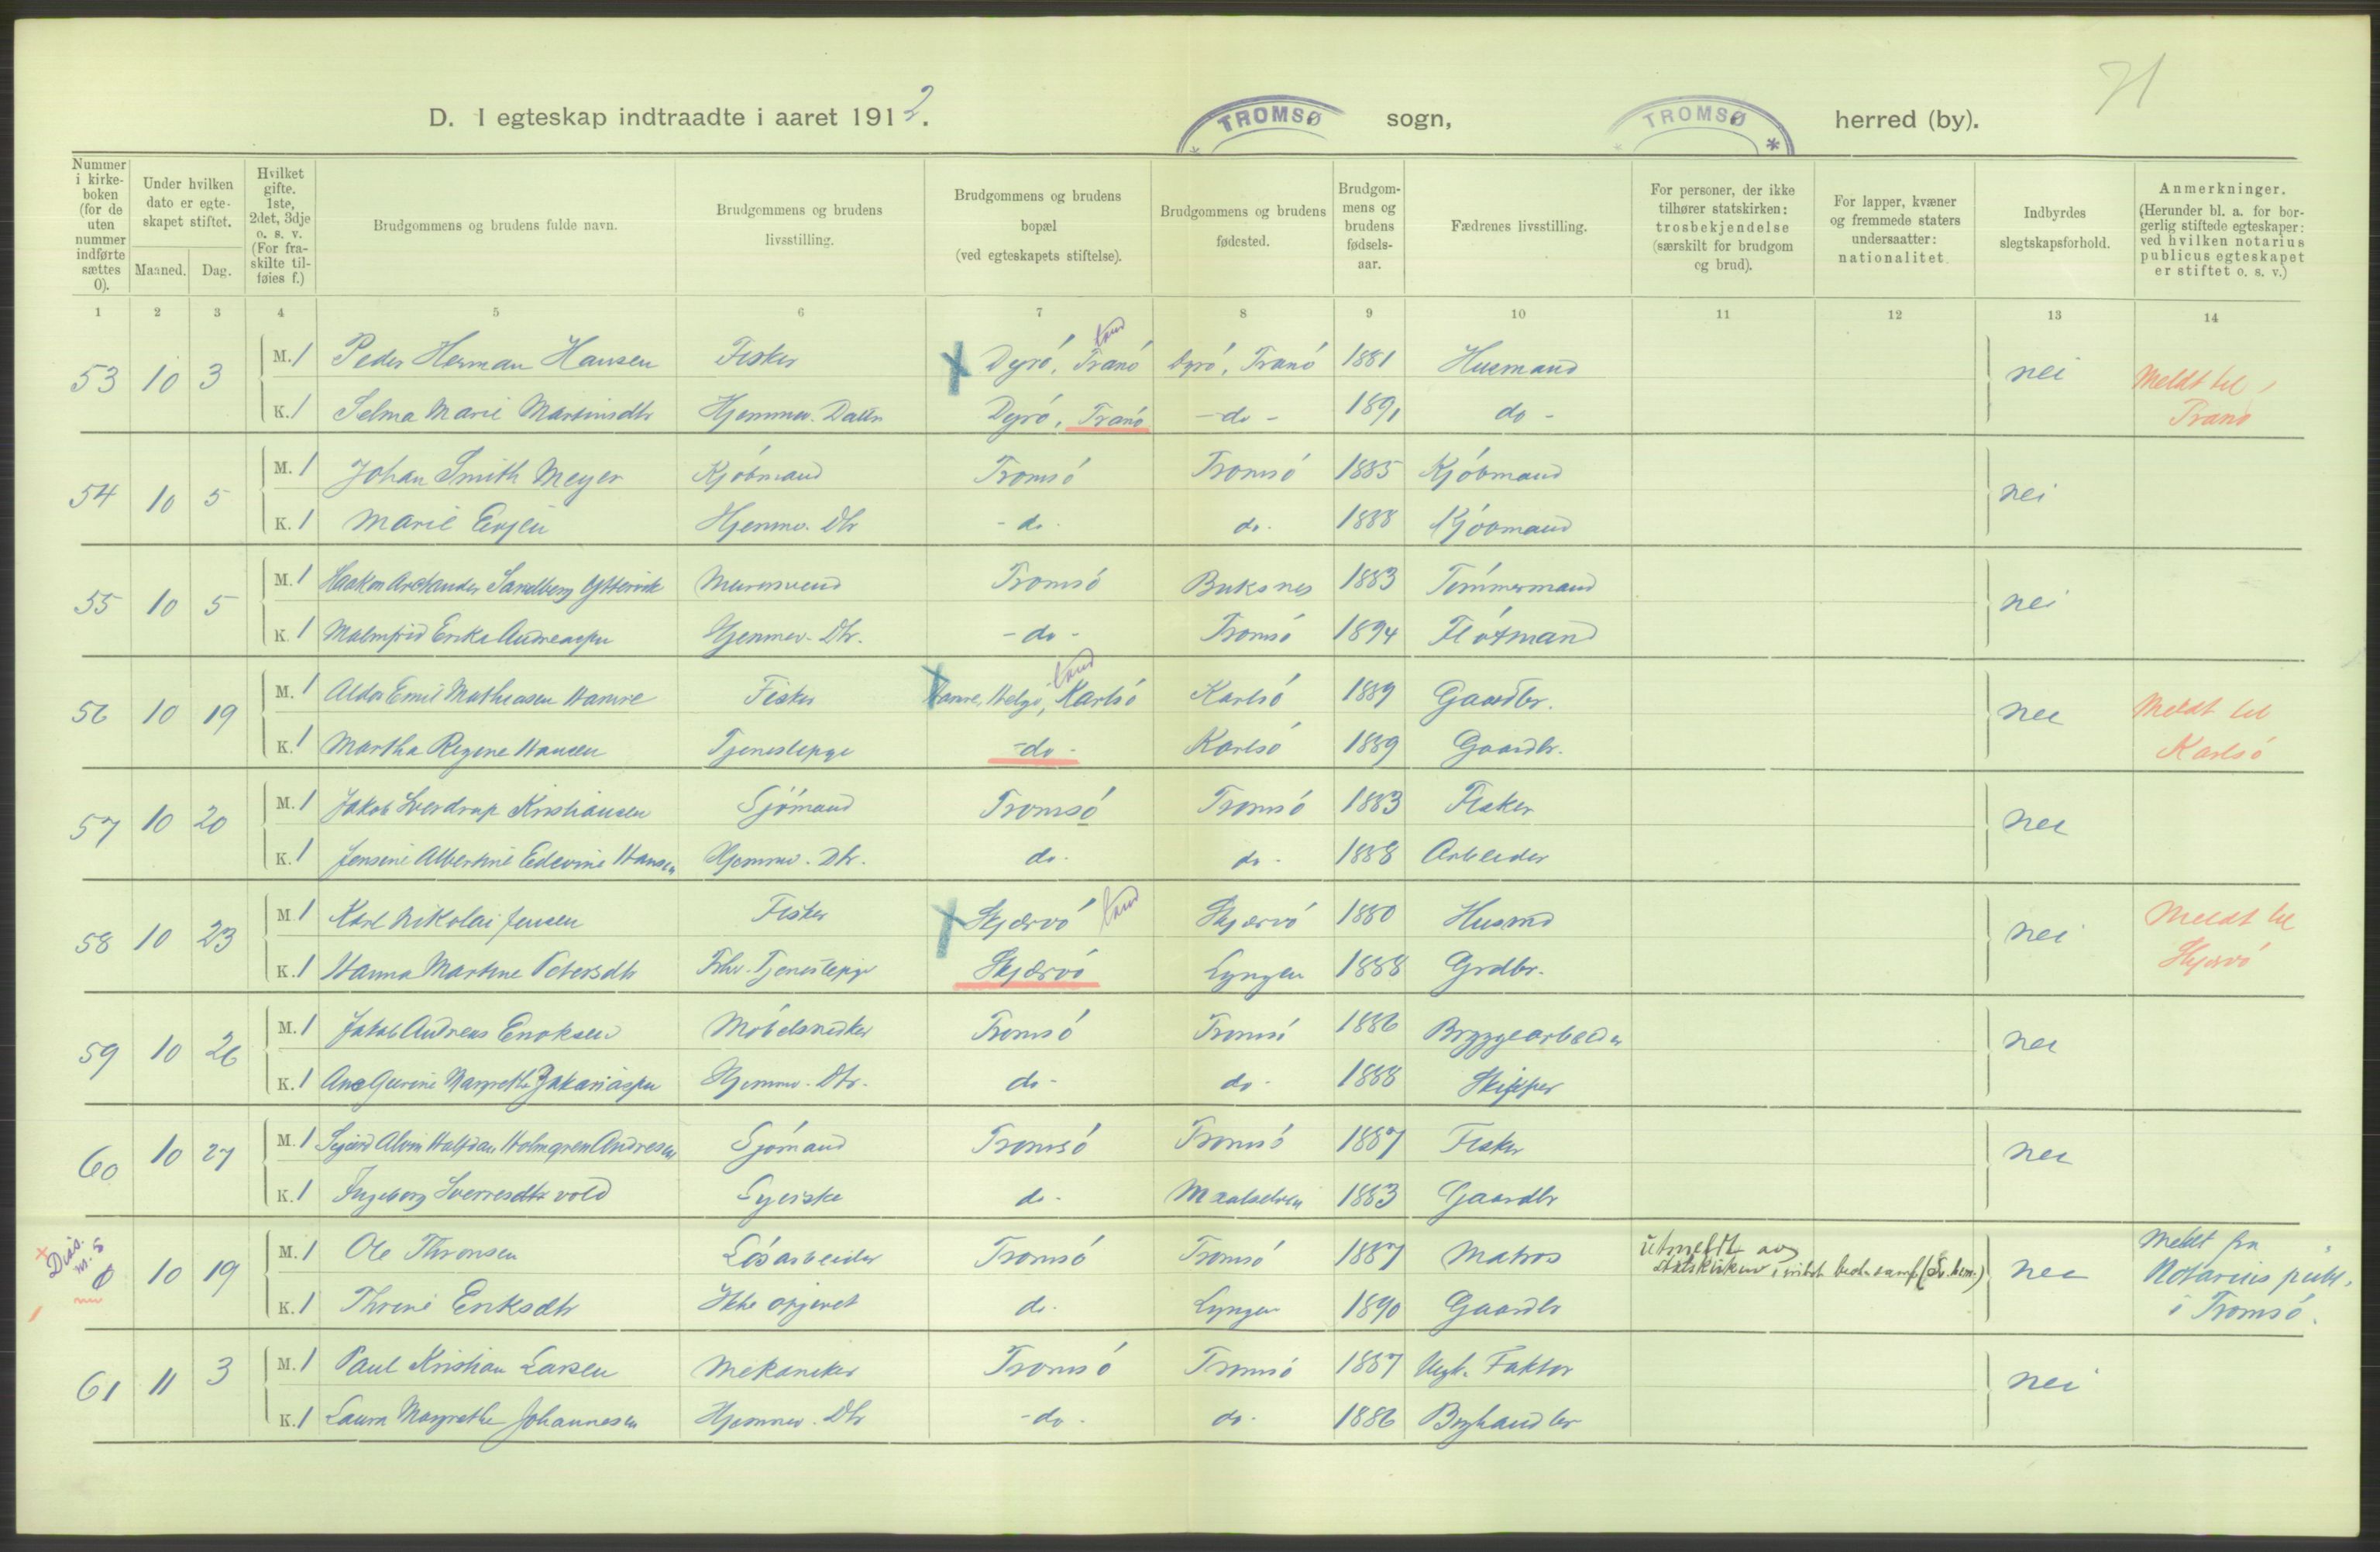 71
D. I egteskap indtraadte i aaret 1912. TROMSØ sogn, TROMSØ herred (by).
Nummer i kirke-boken (for de uten nummer indførte sættes 0).
Under hvilken dato er egte-skapet stiftet.
Maaned. Dag.
Hvilket gifte. 1ste, 2det, 3dje o. s. v. (For fra-skilte til-føies f.)
Brudgommens og brudens fulde navn.
Brudgommens og brudens livsstilling.
Brudgommens og brudens bopæl (ved egteskapets stiftelse).
Brudgommens og brudens fødested.
Brudgom-mens og brudens fødsels-aar.
Fædrenes livsstilling.
For personer, der ikke tilhører statskirken: trosbekjendelse (særskilt for brudgom og brud).
For lapper, kvæner og fremmede staters undersaatter: nationalitet.
Indbyrdes slegtskapsforhold.
Anmerkninger. (Herunder bl. a. for bor-gerlig stiftede egteskaper: ved hvilken notarius publicus egteskapet er stiftet o. s. v.)
1 2 3 4 5 6 7 8 9 10 11 12 13 14
53 10 3 M. 1 Peder Herman Hansen Fisker Dyrö, Tranö land Dyrö, Tranö 1881 Husmand nei Meldt til Tranö
K. 1 Selma Marie Martinsdtr Hjemmev. Dattr Dyrö, Tranö - do - 1891 do -
54 10 5 M. 1 Johan Smith Meyer Kjöbmand Tromsö Tromsö 1885 Kjöbmand nei
K. 1 Marie Evjen Hjemmev. Dtr - do - do. 1888 Kjöbmand
55 10 5 M. 1 Haakon Sandberg Yttervik Murersvend Tromsö Buksnes 1883 Tömmermand nei
K. 1 Malmfrid Erika Andreassen Hjemmev. Dtr. - do - Tromsö 1894 Flötmand
56 10 19 M. 1 Aldor Emil Mathiasen Hamre Fisker Hamre, Helgö, Karlsö land Karlsö 1889 Gaardbr. nei Meldt til Karlsö
K. 1 Martha Regine Hansen Tjenestepige - do - Karlsö 1889 Gaardbr.
57 10 20 M. 1 Jakob Sverdrup Kristiansen Sjömand Tromsö Tromsö 1883 Fisker nei
K. 1 Jensine Albertine Edevine Hansen Hjemmev. Dtr. do - do - 1888 Arbeider
58 10 23 M. 1 Karl Nikolai Jensen Fisker Skjærvö land Skjærvö 1880 Husmd nei Meldt til Skjervö
K. 1 Hanna Martine Petersdtr Fhv. Tjenestepige Skjærvö Lyngen 1888 Grdbr.
59 10 26 M. 1 Jakob Andreas Enoksen Möbelsnedker Tromsö Tromsö 1886 Bryggearbeider nei
K. 1 Ane Gurine Margrethe Zakariassen Hjemmev. Dtr. do - do - 1888 Skipper
60 10 27 M. 1 Sigurd Alvin Halfdan Holmgren Andresen Sjömand Tromsö Tromsö 1887 Fisker nei
K. 1 Ingeborg Sverresdtr vold Syerske do - Maalselven 1883 Gaardbr
Diss. nr. 5 0 10 19 M. 1 Ole Thronsen Lösarbeider Tromsö Tromsö 1887 Matros utmeldt av statskirken nei Meldt fra Notarius publ. i Tromsö.
K. 1 Thrine Eriksdtr Ikke opgivet do - Lyngen 1890 Gaardbr
61 11 3 M. 1 Paul Kristian Larsen Mekaniker Tromsö Tromsö 1887 Faktor nei
K. 1 Laura Margrethe Johannesen Hjemmev. Dtr - do - do - 1886 Byhandler